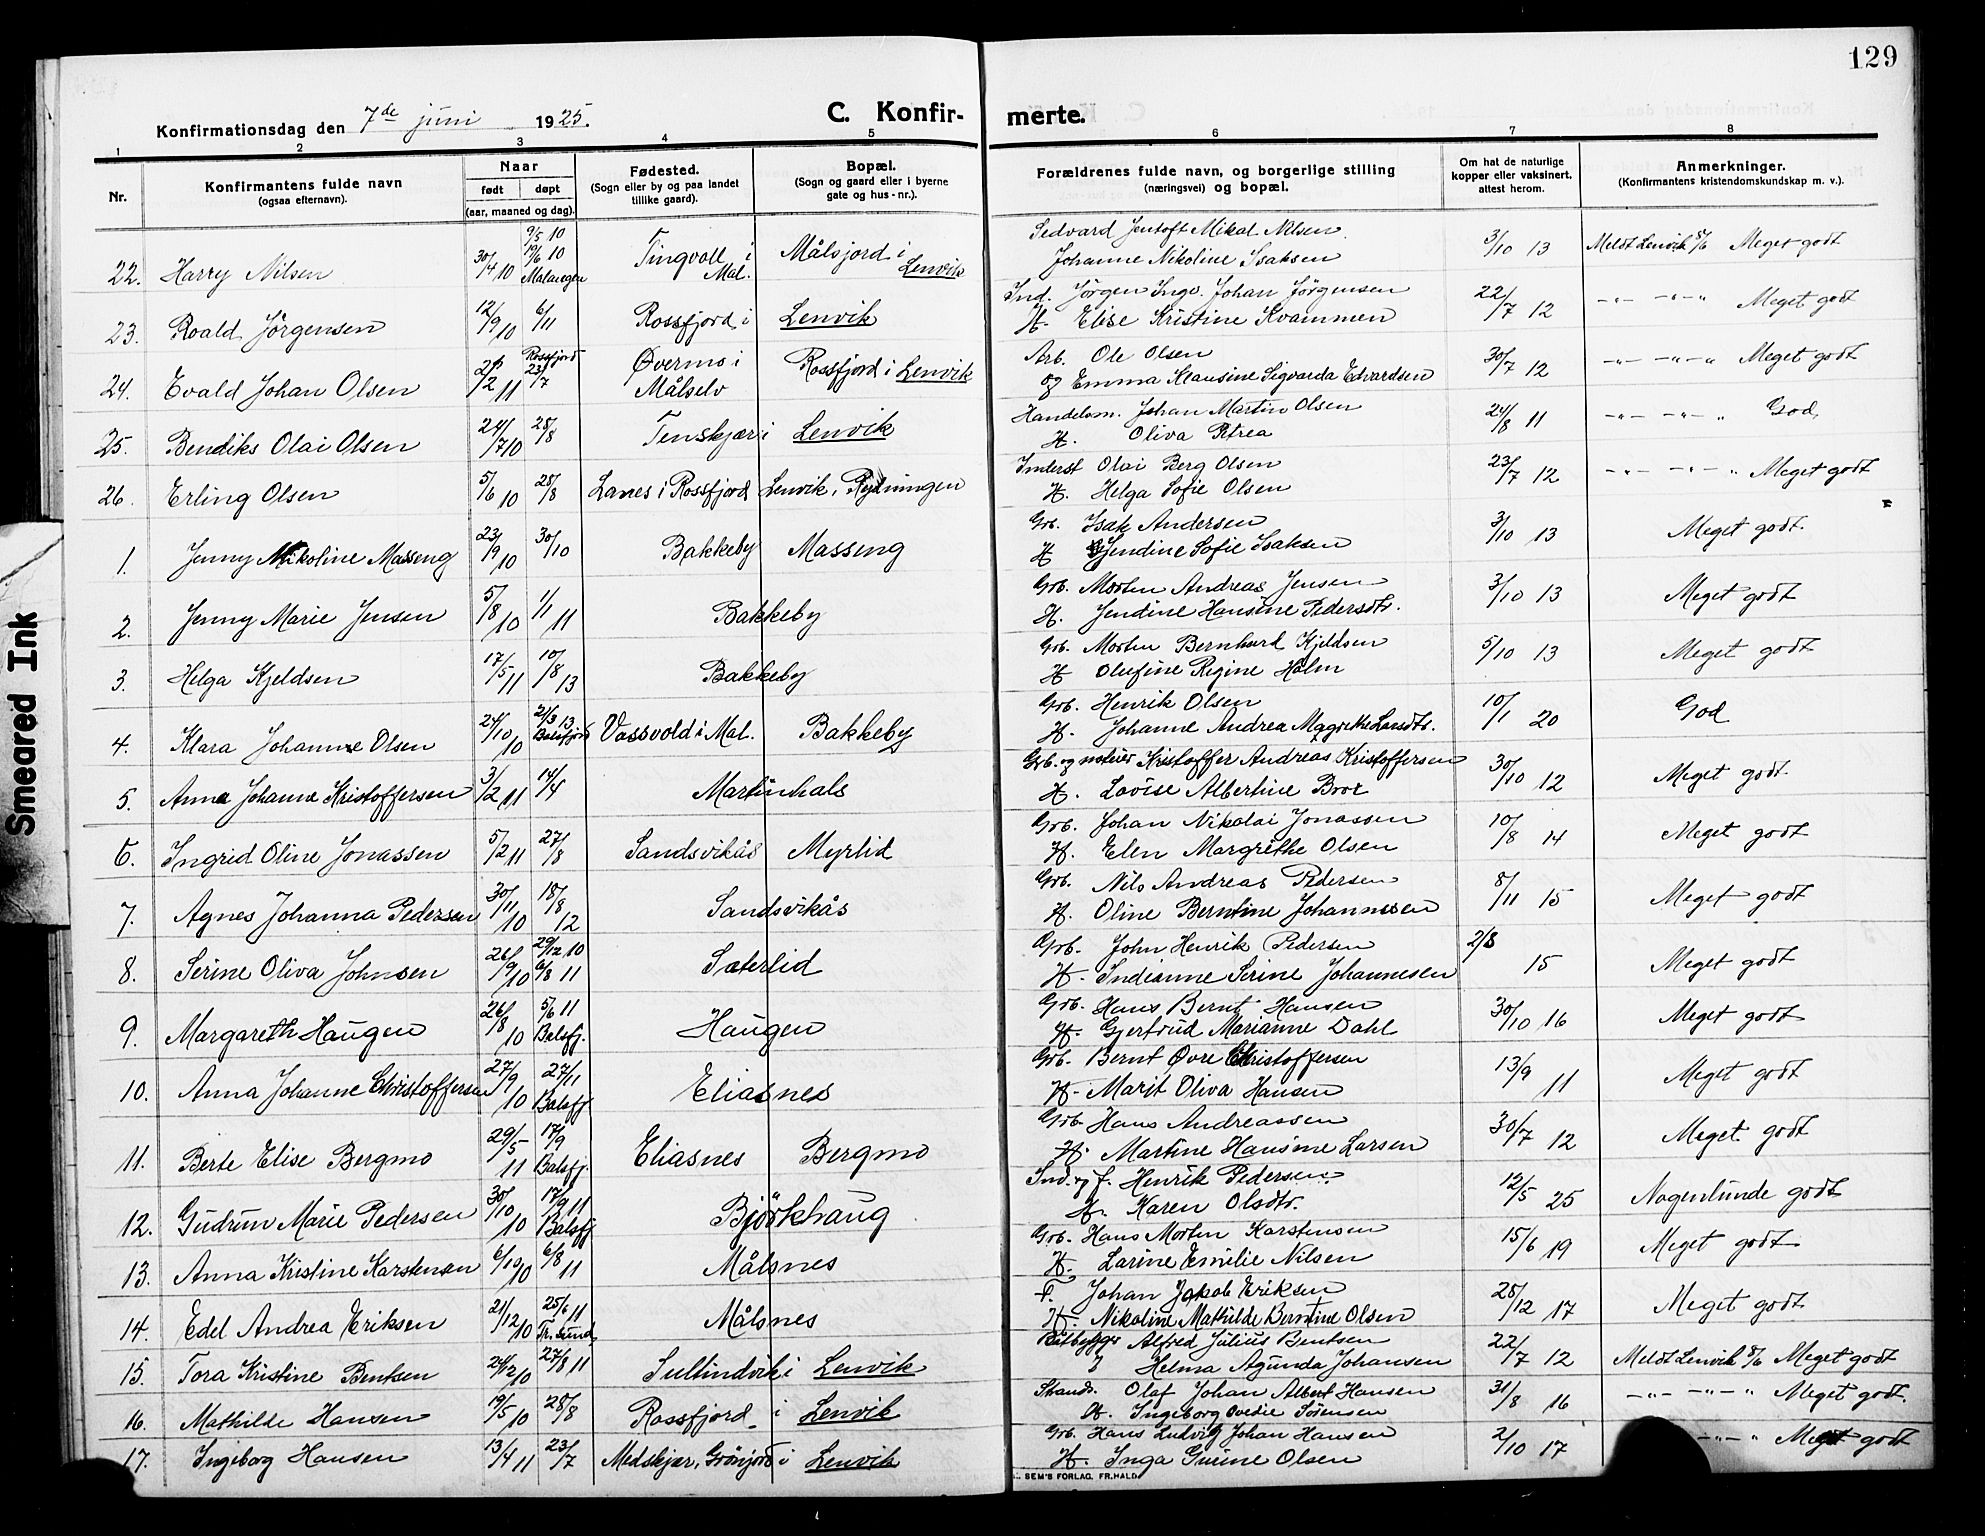 129
Konfirmationsdag den 7de juni 1925.
C. Konfir-
merte.
1 2 3 4 5 6 7 8
Nr.
Konfirmantens fulde navn
(ogsaa efternavn).
Naar
født døpt
(aar, maaned og dag).
Fødested.
(Sogn eller by og paa landet
tillike gaard).
Bopæl.
(Sogn og gaard eller i byerne
gate og hus-nr.).
Forældrenes fulde navn, og borgerlige stilling
(næringsvei) og bopæl.
Om hat de naturlige
kopper eller vaksinert.
attest herom.
Anmerkninger.
(Konfirmantens kristendomskundskap m. v.).
9/5 10
19/6 10
Sedvard Jentoft Mikal Nilsen
22. Harry Nilsen 30/4 10 Malangen Tingvoll i Mal. Målsjord i Lenvik Johanne Nikoline Isaksen 3/10 13 Meldt Lenvik 8/6 Meget godt
Ind. Jörgen Inge. Johan Jörgensen
23. Roald Jörgensen 12/9 10 6/11 Rossfjord i Lenvik H. Elise Kristine Kvammen 22/7 12 -"- -"-" Meget godt
Rossfjord
Arb. Ole Olsen
24. Evald Johan Olsen 2/2 11 23/7 Övermo i Målselv Rossfjord i Lenvik og Emma Klausine Sigvarda Edvardsen 30/7 12 -"- -"-" Meget godt
Handelsm. Johan Martin Olsen
25. Bendiks Olai Olsen 24/7 10 28/8 Tenskjær i Lenvik H. Oliva Petrea 24/8 11 -"- -"- " God
Inderst Olai Berg Olsen
26. Erling Olsen 5/6 10 28/8 Lanes i Rossfjord Lenvik, Rydningen H. Helga Sofie Olsen 23/7 12 -"- -"- " Meget godt
Grb. Isak Andersen
1. Jenny Nikoline Masseng 23/9 10 30/10 Bakkeby Masseng H Jendine Sofie Isaksen 3/10 13 Meget godt.
Grb. Morten Andreas Jensen
2. Jenny Marie Jensen 5/8 10 1/1 11 Bakkeby H. Jendine Hansine Pedersdtr. 3/10 13 Meget godt
Grb. Morten Bernhard Kjeldsen
3. Helga Kjeldsen 17/5 11 10/8 13 Bakkeby H Olufine Regine Holm 5/10 13 Meget godt
Grb. Henrik Olsen
4. Klara Johanne Olsen 24/10 10 2/3 13 Balsfjord Vassvold i Mal. Bakkeby H. Johanne Andrea Magrethe Larsdtr. 10/1 20 God
Grb. og noteier Kristoffer Andreas Kristoffersen
5. Anna Johanne Kristoffersen 3/2 11 14/4 Martinhals H. Lovise Albertine Brox 30/10 12 Meget godt.
Grb. Johan Nikolai Jonassen
6. Ingrid Oline Jonassen 5/2 11 27/8 Sandsvikås Myrlid H. Elen Margrethe Olsen 10/8 14 Meget godt
Grb. Nils Andreas Pedersen
7. Agnes Johanna Pedersen 30/11 10 18/8 12 Sandsvikås H. Oline Berntine Johannessen 8/11 15 Meget godt
Grb. John Henrik Pedersen
8. Serine Oliva Johnsen 26/9 10 29/12 10 6/8 11 Sæterlid H. Indianne Serine Johannesen 2/8 15 Meget godt
Grb. Hans Bernt Hansen
9. Margareth Haugen 26/8 10 5/6 11 Balsfj. Haugen H. Gjertrud Marianne Dahl 30/10 16 Meget godt
Grb. Bernt Övre Christoffersen
10. Anna Johanne Christoffersen 27/9 10 27/11 Balsfj Eliasnes H. Marit Oliva Hansen 13/9 11 Meget godt
Grb. Hans Andreassen
11. Berte Elise Bergmo 29/5 11 17/9 Balsfj. Eliasnes Bergmo H. Martine Hansine Larsen 30/7 12 Meget godt
Ind. og f. Henrik Pedersen
12. Gudrun Marie Pedersen 30/10 10 17/9 11 Balsfj Björkhaug H. Karen Olsdtr. 12/5 25 Nogenlunde godt
Grb. Hans Morten Karstensen
13. Anna Kristine Karstensen 6/10 10 6/8 11 Målsnes H. Larine Emilie Nilsen 15/6 19 Meget godt
F. Johan Jakob Eriksen
14. Edel Andrea Eriksen 21/12 10 25/6 11 Tr. sund Målsnes H. Nikoline Mathilde Berntine Olsen 28/12 17 Meget godt
Båtbygger Alfred Julius Bentsen
15. Tora Kristine Bentsen 24/12 10 27/8 11 Sultindvik i Lenvik Helma Agunda Johansen 22/7 12 Meldt Lenvik 8/6 Meget godt
Strands. Olaf Johan Albert Hansen
16. Mathilde Hansen 19/5 10 28/8 Rossfjord i Lenvik H. Ingeborg Ovedie Sörensen 31/8 16 -"- -"- " Meget godt.
Grb. Hans Ludvig Johan Hansen
17. Ingeborg Hansen 13/4 11 23/7 Medskjær, Grönjord i Lenvik H. Inga Gurine Olsen 2/10 17 -"-" Meget godt
SEM'S FORLAG, FR.HALD
Smeared Ink